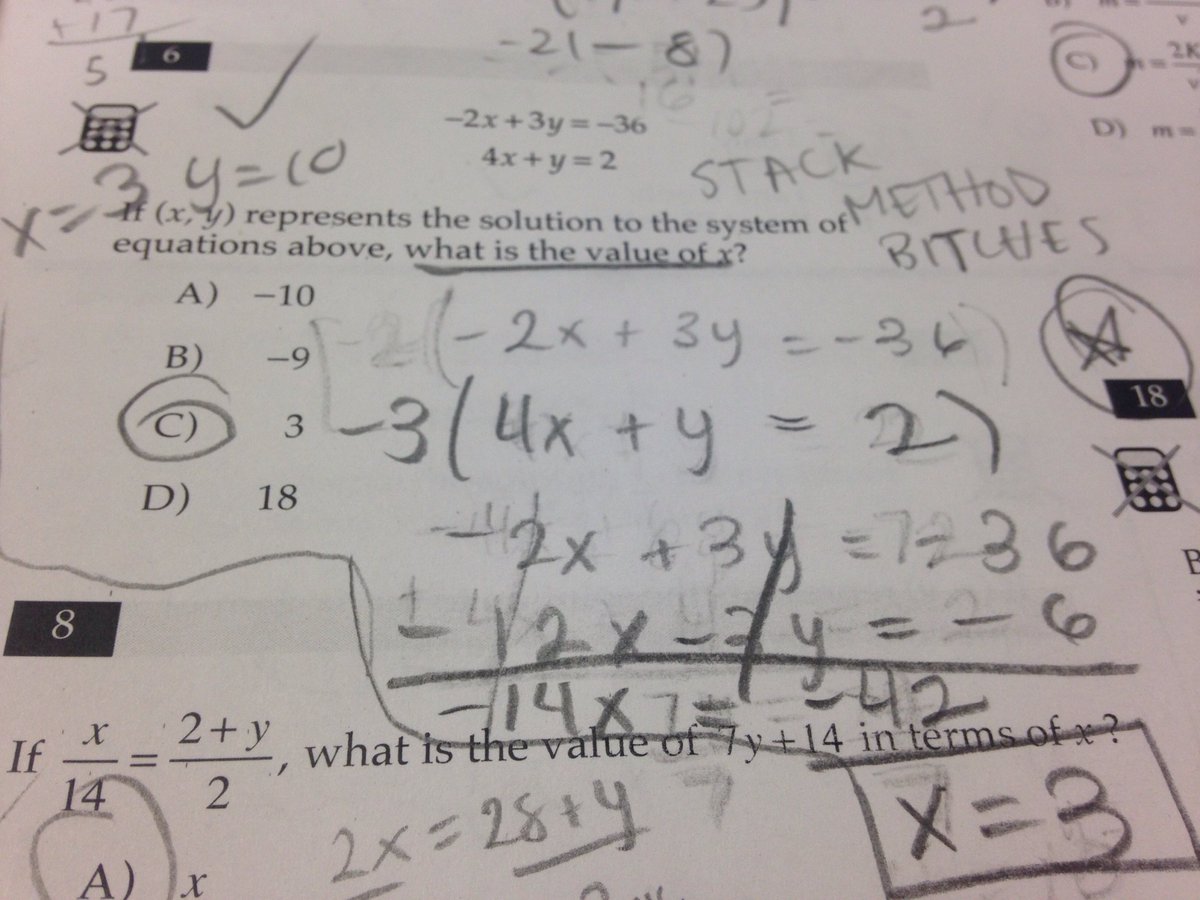 +17
5
6
-21-87
2
C) m = 2K
v
D) m =
−2x + 3y = −36
4x + y = 2
STACK
METHOD
BITCHES
x = 3, y = 10
If (x, y) represents the solution to the system of
equations above, what is the value of x?
A) −10
B) −9
C) 3
D) 18
-2(-2x + 3y = -36)
-3(4x + y = 2)
-2x + 3y = -36
+ -12x - 3y = -6
-14x = -42
x = 3
18
8
If x/14 = 2+y/2, what is the value of 7y + 14 in terms of x?
2x = 28+y
A) x